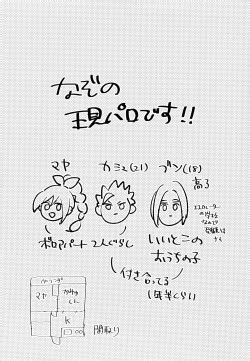 なぞの
現パロです!!
マヤ
カミュ(21)
ブン(18)
高3
ボロアパート 2人ぐらし
いいとこの
おうちの子
付き合ってる
1年半くらい
マヤ
K
間取り